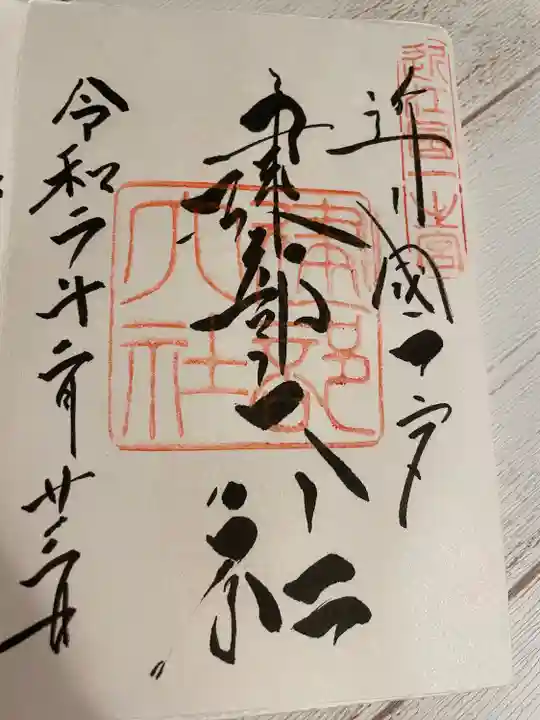 近江國一宮
近江國一之宮
建部大社
建部大社
令和六年十二月廿二日